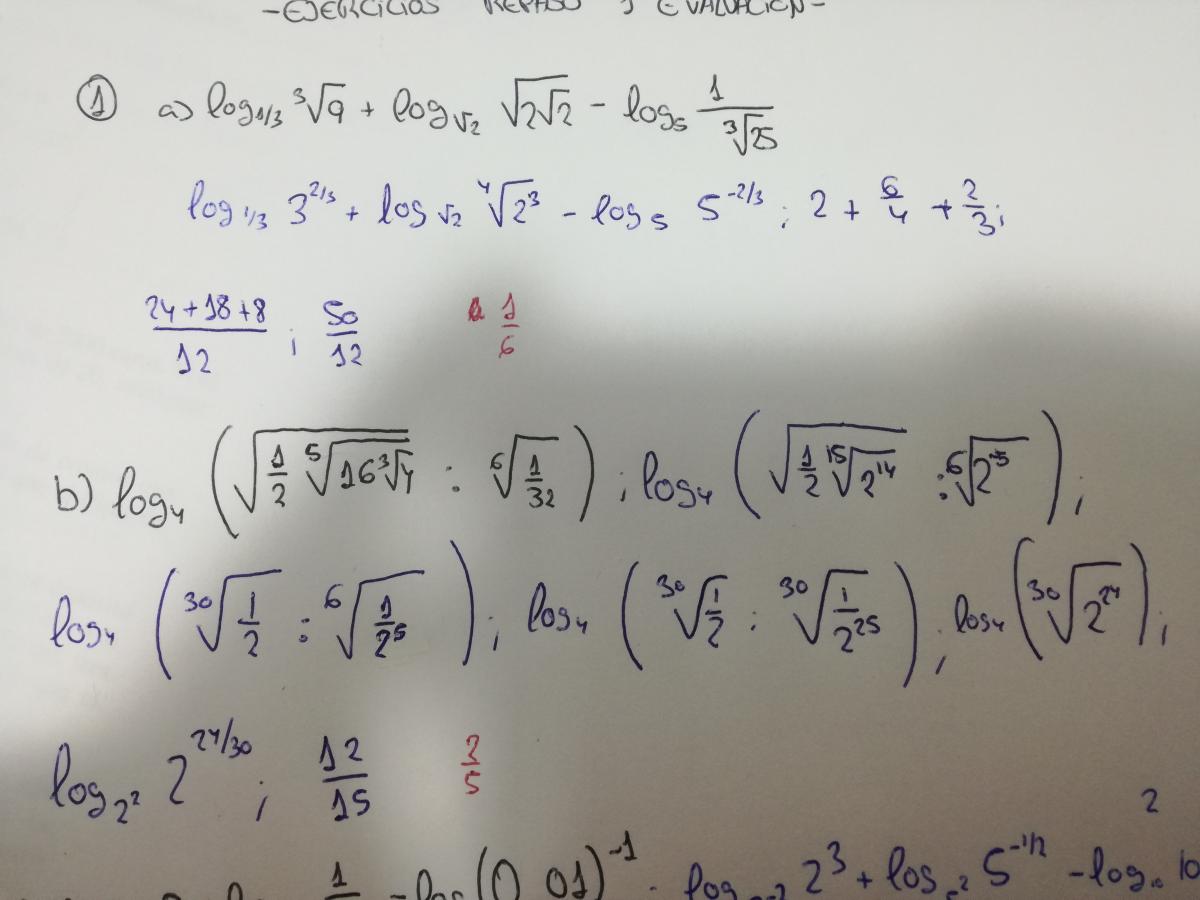 -EJERCICIOS REPASO 1 EVALUACIÓN-
① a) log₁/₃ ³√9 + log√₂ √(2√2) - log₅ 1/³√25
log₁/₃ 3^(2/3) + log√₂ ⁴√2³ - log₅ 5^(-2/3) ; 2 + 6/4 + 2/3 ;
(24+18+8)/12 ; 50/12 1/6
b) log₄ (√(1/2 ⁵√(16 ³√4)) : ⁶√(1/32)) ; log₄ (√(1/2 ¹⁵√2¹⁴) : ⁶√2⁻⁵) ;
log₄ (³⁰√(1/2) : ⁶√(1/2⁵)) ; log₄ (³⁰√(1/2) : ³⁰√(1/2²⁵)) ; log₄ (³⁰√2²⁴) ;
log₂² 2^(24/30) ; 12/15 3/5
2
1 - log (0,01)⁻¹ · log 2³ + log 5^(-1/2) - log 10